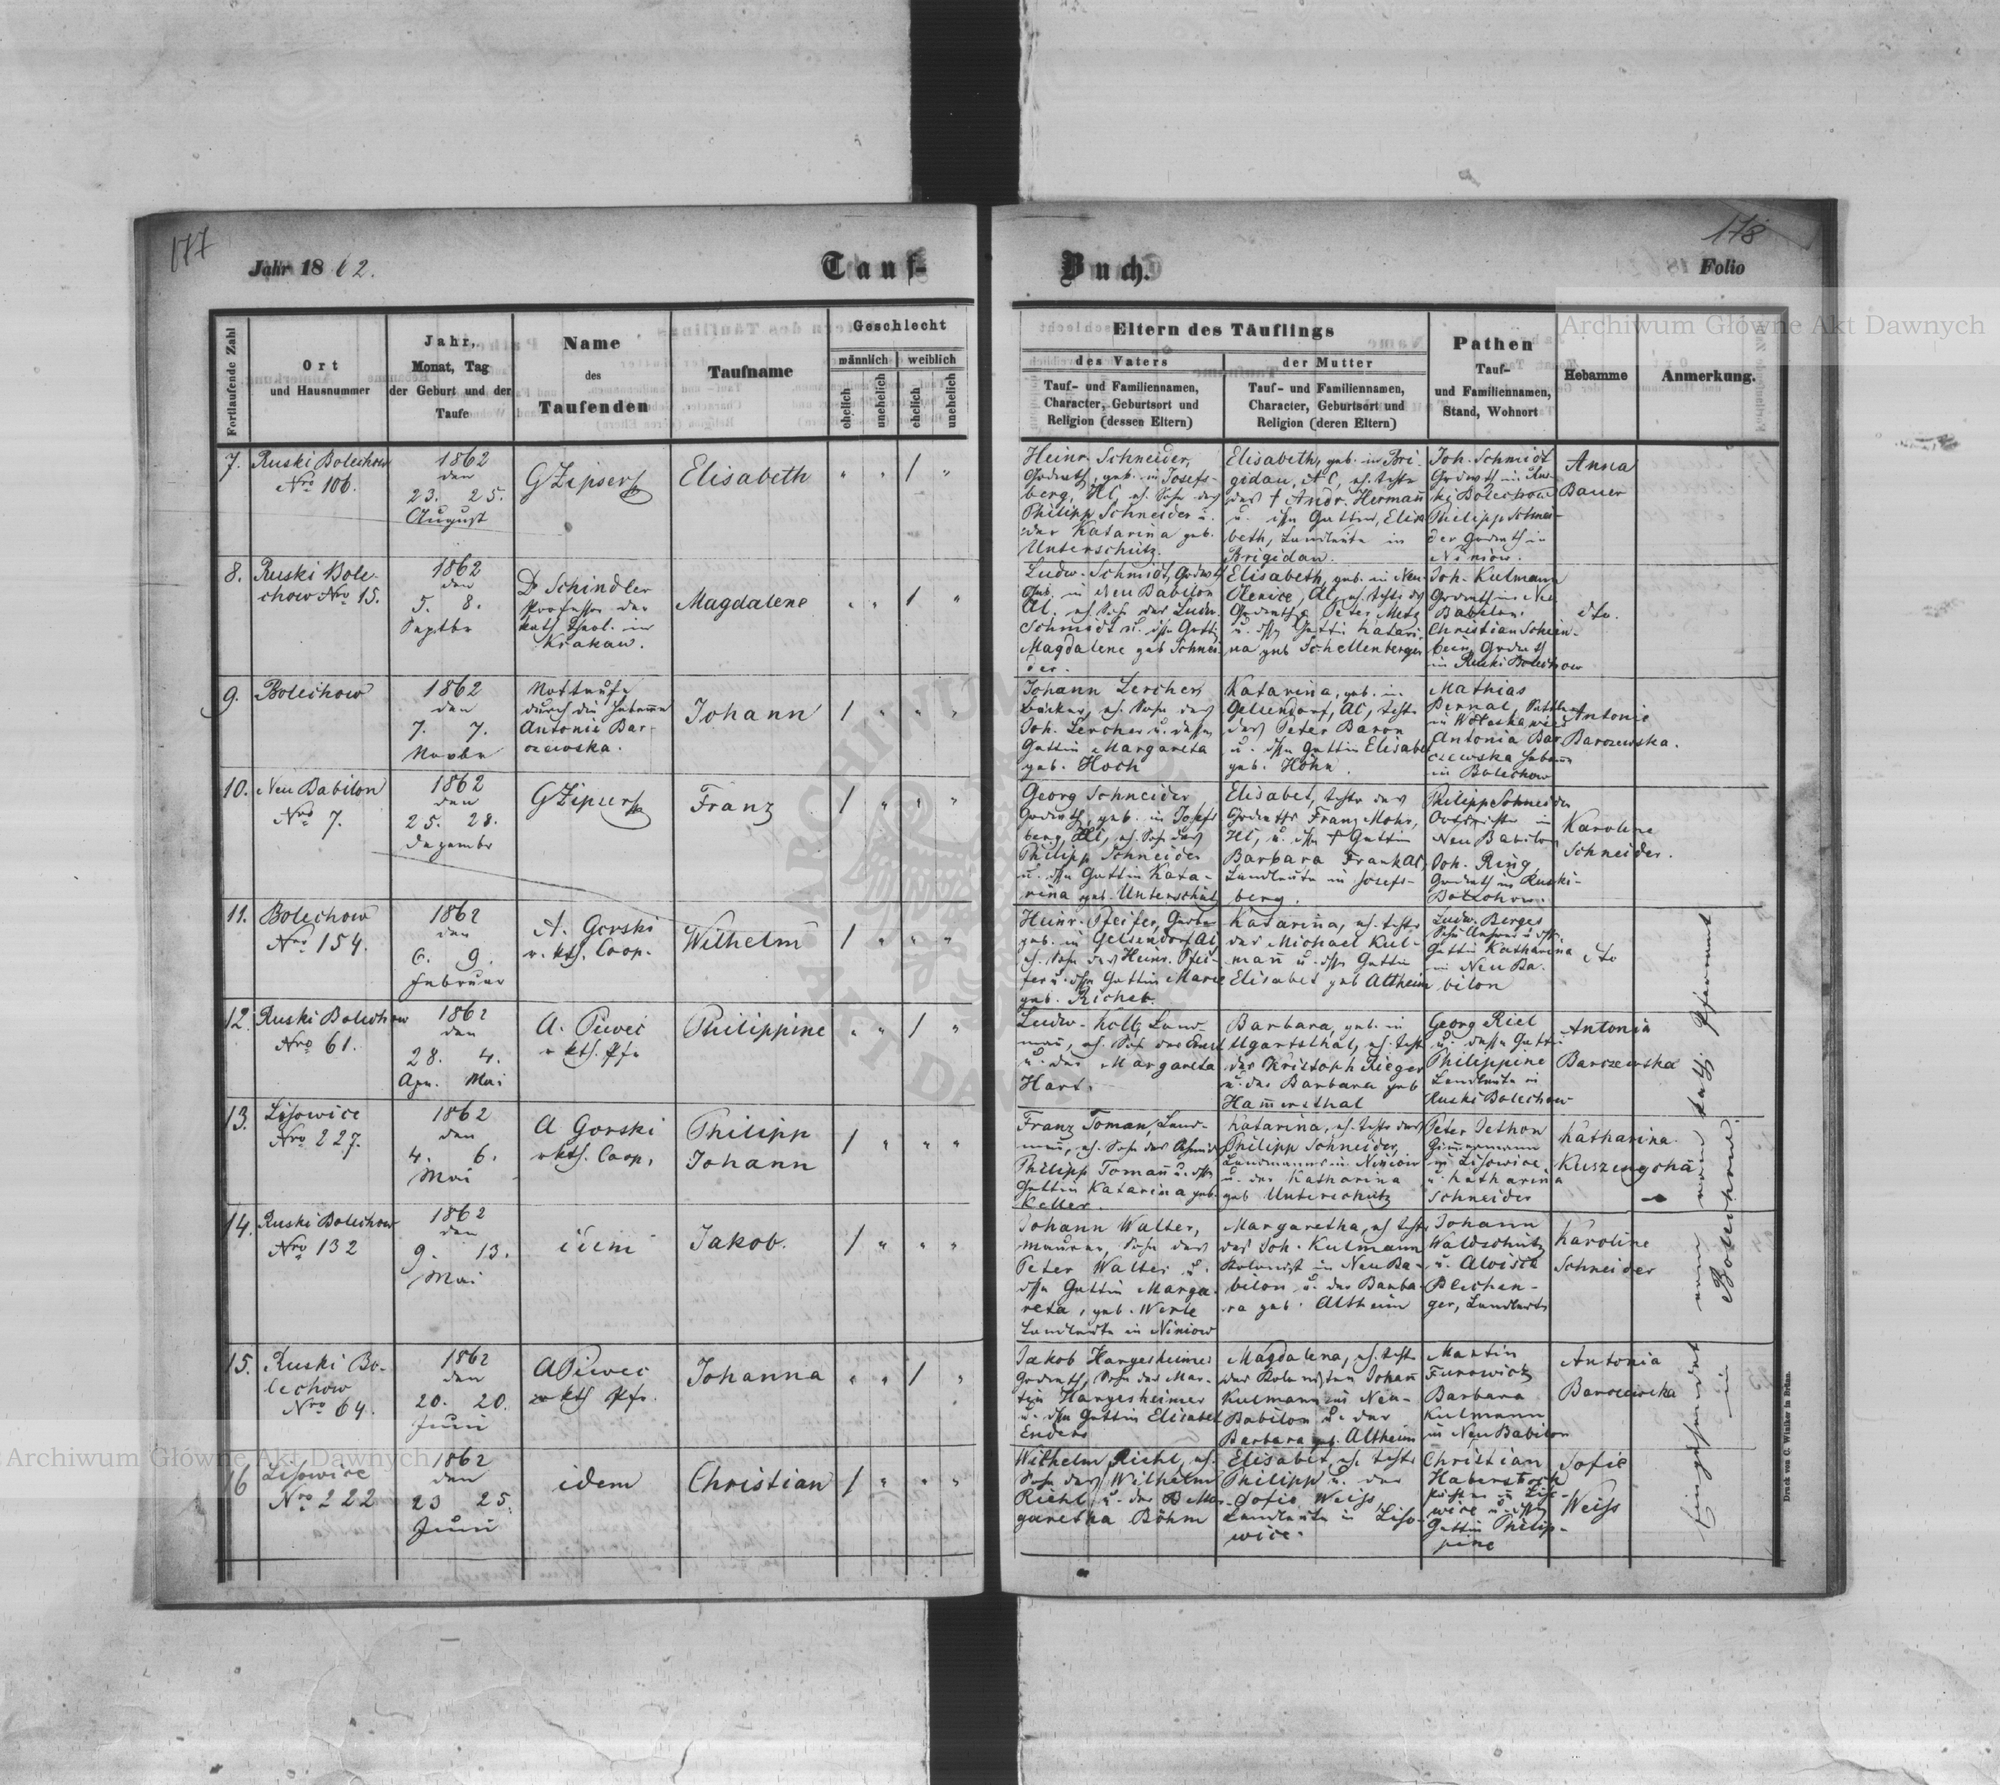 177
178
Jahr 1862.
Tauf-
Buch.
Folio
Archiwum Główne Akt Dawnych
Fortlaufende Zahl
Ort
und Hausnummer
Jahr,
Monat, Tag
der Geburt und der
Taufe
Name
des
Taufenden
Taufname
Geschlecht
männlich
weiblich
ehelich
unehelich
ehelich
unehelich
Eltern des Täuflings
des Vaters
Tauf- und Familiennamen,
Character, Geburtsort und
Religion (dessen Eltern)
der Mutter
Tauf- und Familiennamen,
Character, Geburtsort und
Religion (deren Eltern)
Pathen
Tauf-
und Familiennamen,
Stand, Wohnort
Hebamme
Anmerkung.
7.
Ruski Bolechow
Nro 106.
1862
den
23. 25.
August
GZipser
Elisabeth
Heinr. Schneider,
geb. in Josefs-
berg, HC, eh. Sohn des
Philipp Schneider u.
der Katarina geb.
Unterschütz.
Elisabeth, geb. in Bri-
gidau, AC, eh. Tochter
des † Andr. Hermañ
u. Gattin, Elisa
beth, Landleute in
Brigidau.
Joh. Schmidt
Grdwrth in Rus-
ki Bolechow
Philipp Schnei-
der Grdwrth in
Niniow.
Anna
Bauer
8.
Ruski Bole-
chow Nro 15.
1862
den
5. 8.
Septbr
Dr Schindler
Professor der
kath. Theol. in
Krakau.
Magdalene
Ludw. Schmidt, Grdwrth
geb. in Neu Babilon
AC. eh. Sohn des Ludw.
Schmidt u. Gattin
Magdalene geb Schnei-
der.
Elisabeth, geb. in Neu-
Olenice, AC, eh. Tochter des
Peter Metz
u. Gattin Katari-
na geb Schellenberger
Joh. Kulmann
Grdwrth in Neu
Babilon.
Christian Schein-
bein, Grdwrth
in Ruski Bolechow
dto.
9.
Bolechow
1862
den
7. 7.
Novbr
Nottaufe
durch die Hebamme
Antonie Bar-
czewska.
Johann
Johann Lercher,
Bäcker, eh. Sohn des
Joh. Lercher u. dessen
Gattin Margareta
geb. Hoch
Katarina, geb. in
Gelsendorf, AC, Tochter
des Peter Baron
u. Gattin Elisabet
geb. Höhn.
Mathias
Bernal,
in Woloska wies
Antonia Bar-
czewska Hebamme
in Bolechow
Antonie
Barczewska.
10.
Neu Babilon
Nro 7.
1862
den
25. 28.
Dezember
GZipser
Franz
Georg Schneider
Grdwrth, geb. in Josefs
berg, HC, eh. Sohn des
Philipp Schneider
u. Gattin Kata-
rina geb. Unterschütz
Elisabet, Tochter des
Grdwrths Franz Mohr,
HC, u. † Gattin
Barbara Frank AC,
Landleute in Josefs-
berg.
Philipp Schneider
Ortsrichter in
Neu Babilon
Joh. Ring
Grdwrth in Ruski-
Bolechow.
Karoline
Schneider.
11.
Bolechow
Nro 154.
1862
den
6. 9.
Februar
A. Gorski
r. kth. Coop.
Wilhelm
Heinr. Pfeifer, Gerber
geb. in Gelsendorf AC
eh. Sohn des Heinr. Pfei-
fer u. Gattin Marie
geb. Richeb.
Katarina, eh. Tochter
des Michael Kul-
mañ u. Gattin
Elisabet geb Altheim
Ludw. Berges
Gattin Katharina
in Neu Ba-
bilon
dto
12.
Ruski Bolechow
Nro 61.
1862
den
28. 4.
Apr. Mai
A. Piwei
r kth. Pfr
Philippine
Ludw. Koltz Land-
mañ, eh. Sohn des
u. der Margareta
Hart.
Barbara, geb. in
Ugartsthal, eh. Tochter
des Kristoph Rieger
u. der Barbara geb
Hamersthal
Georg Riel
u. dessen Gattin
Philippine
Landleute in
Ruski Bolechow
Antonia
Barczewska
13.
Lisowice
Nro 227.
1862
den
4. 6.
Mai
A Gorski
r kth. Coop.
Philipp
Johann
Franz Toman, Land-
mañ, eh. Sohn des
Philipp Tomañ u.
Gattin Katarina geb.
Keller.
Katarina, eh. Tochter des
Philipp Schneider,
Landmanns in Niniow
u. der Katharina
geb Unterschütz
Peter Dethon
Zimmermann
in Lisowice
u. Katharina
Schneider
Katharina
14.
Ruski Bolechow
Nro 132
1862
den
9. 13.
Mai
idem
Jakob.
Johann Walter,
Maurer, Sohn des
Peter Walter u.
Gattin Marga-
reta, geb. Werle
Landleute in Niniow
Margaretha, eh Tochter
des Joh. Kulmann
Kolonist in Neu Ba-
bilon u. der Barba-
ra geb. Altheim
Johann
Waldschütz
u. Aloisia
Blechin-
ger, Landleute
Karoline
Schneider
15.
Ruski Bo-
lechow
Nro 64.
1862
den
20. 20.
Juni
A Piwei
r kth Pfr.
Johanna
Jakob Hargesheimer
Grdwrth, Sohn des Mar-
tin Hargesheimer
u. Gattin Elisabet
Enders
Magdalena, eh. Tochter
des Kolonisten Johañ
Kulmann in Neu-
Babilon u. der
Barbara geb. Altheim
Martin
Furowicz
Barbara
Kulmann
in Neu Babilon
Antonia
Barczewska
16
Lisowice
Nro 222
1862
den
23 25.
Juni
idem
Christian
Wilhelm Riehl, eh.
Sohn des Wilhelm
Riehl u. der Mar-
garetha Böhm
Elisabet, eh Tochter
Philipp u. der
Sofie Weiss,
Landleute in Liso-
wice.
Christian
Haberstock
in Liso-
wice u.
Gattin Philip-
pine
Sofie
Weiss
Eingesendet vom röm. kath. Pfarramt
in Bolechow.
Druck von C. Winiker in Brünn.
Archiwum Główne Akt Dawnych
ARCHIWUM
AKT DAWNYCH